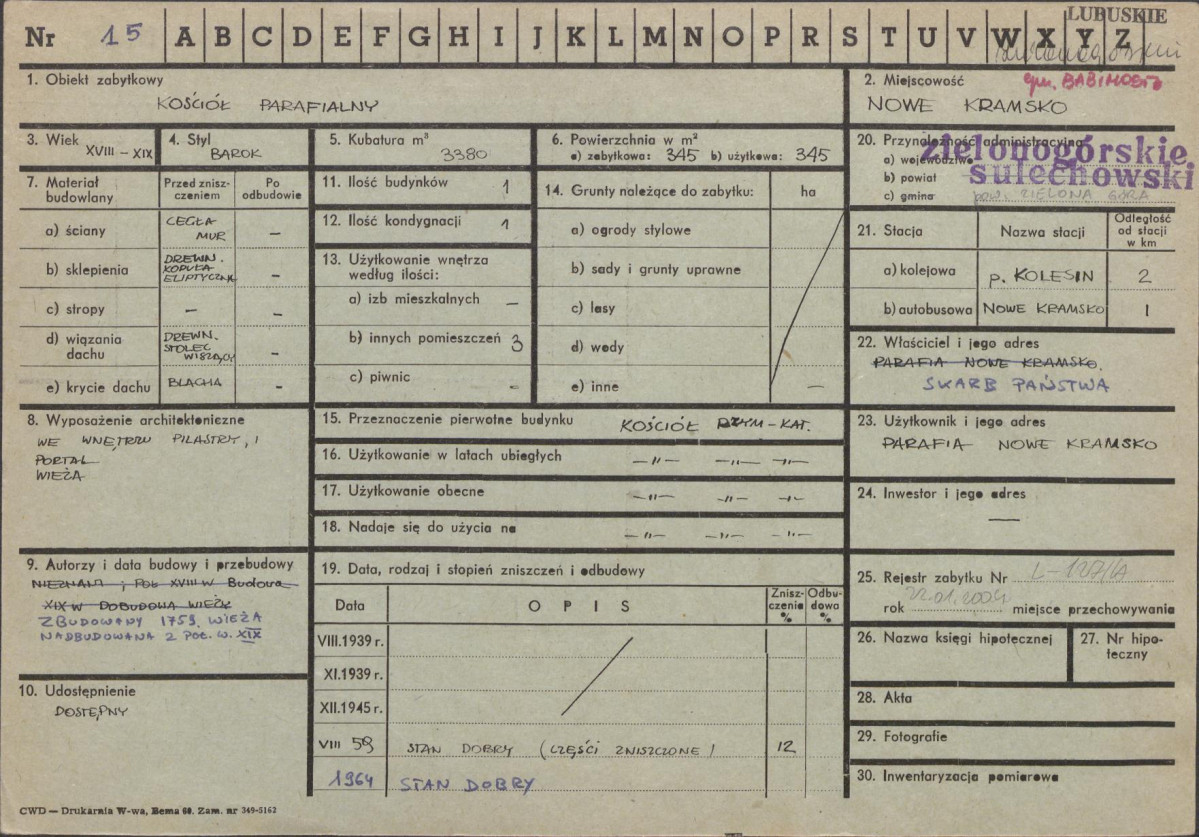 LUBUSKIE
Nr 15 A B C D E F G H I J K L M N O P R S T U V W X Y Z
1. Obiekt zabytkowy
KOŚCIÓŁ PARAFIALNY
2. Miejscowość
gm. BABIMOST
NOWE KRAMSKO
3. Wiek
XVIII – XIX
4. Styl
BAROK
5. Kubatura m³
3380
6. Powierzchnia w m²
a) zabytkowa: 345 b) użytkowa: 345
20. Przynależność administracyjna
a) województwo zielonogórskie
b) powiat sulechowski
c) gmina pow. ZIELONA GÓRA
7. Materiał budowlany
Przed zniszczeniem
Po odbudowie
a) ściany CEGŁA MUR –
b) sklepienia DREWN. KOPUŁA ELIPTYCZNA –
c) stropy – –
d) wiązania dachu DREWN. STOLEC WISZĄCY –
e) krycie dachu BLACHA –
11. Ilość budynków 1
12. Ilość kondygnacji 1
13. Użytkowanie wnętrza
według ilości:
a) izb mieszkalnych –
b) innych pomieszczeń 3
c) piwnic –
14. Grunty należące do zabytku: ha
a) ogrody stylowe
b) sady i grunty uprawne
c) lasy
d) wody
e) inne –
21. Stacja Nazwa stacji Odległość od stacji w km
a) kolejowa p. KOLESIN 2
b) autobusowa NOWE KRAMSKO 1
22. Właściciel i jego adres
PARAFIA NOWE KRAMSKO.
SKARB PAŃSTWA
8. Wyposażenie architektoniczne
WE WNĘTRZU PILASTRY, I
PORTAL
WIEŻA
15. Przeznaczenie pierwotne budynku KOŚCIÓŁ RZYM-KAT.
16. Użytkowanie w latach ubiegłych –"– –"– –"–
17. Użytkowanie obecne –"– –"– –"–
18. Nadaje się do użycia na –"– –"– –"–
23. Użytkownik i jego adres
PARAFIA NOWE KRAMSKO
24. Inwestor i jego adres
—
9. Autorzy i data budowy i przebudowy
NIEZNANI; POŁ XVIII W Budowa
XIX W DOBUDOWA WIEŻY
ZBUDOWANY 1753, WIEŻA
NADBUDOWANA 2 POŁ. W. XIX
19. Data, rodzaj i stopień zniszczeń i odbudowy
Data OPIS Zniszczenia % Odbudowa %
VIII.1939 r.
XI.1939 r.
XII.1945 r.
VIII 59 STAN DOBRY (CZĘŚCI ZNISZCZONE) 12
1964 STAN DOBRY
25. Rejestr zabytku Nr L-127/A
rok 22.01.2004 miejsce przechowywania
26. Nazwa księgi hipotecznej
27. Nr hipoteczny
10. Udostępnienie
DOSTĘPNY
28. Akta
29. Fotografie
30. Inwentaryzacja pomiarowa
CWD — Drukarnia W-wa, Bema 60. Zam. nr 349-5162